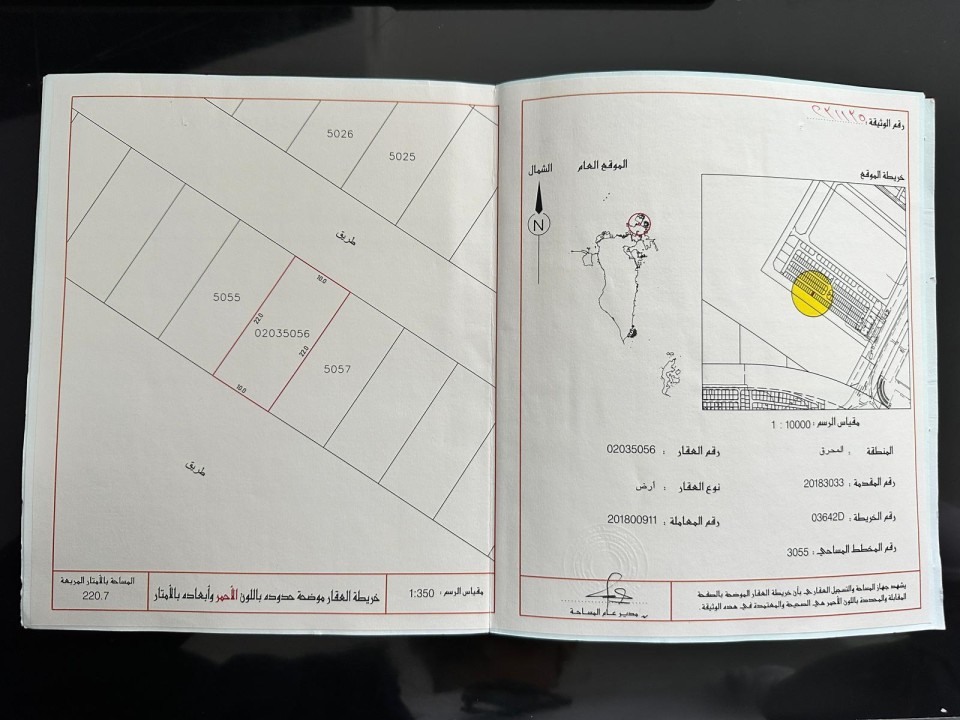 رقم الوثيقة : ٢٢١١٢٥
خريطة الموقع
الموقع العام
الشمال
N
مقياس الرسم : 10000 : 1
المنطقة : المحرق
رقم العقار : 02035056
رقم المقدمة : 20183033
نوع العقار : ارض
رقم الخريطة : 03642D
رقم المعاملة : 201800911
رقم المخطط المساحي : 3055
يشهد جهاز المساحة والتسجيل العقاري بأن خريطة العقار الموضحة بالصفحة
المقابلة والمحددة باللون الأحمر هي الصحيحة والمعتمدة في هذه الوثيقة
مدير عام المساحة
5026
5025
طريق
5055
10.0
22.0
02035056
22.0
10.0
5057
طريق
مقياس الرسم : 1:350
خريطة العقار موضحة حدوده باللون الأحمر وأبعاده بالأمتار
المساحة بالأمتار المربعة
220.7